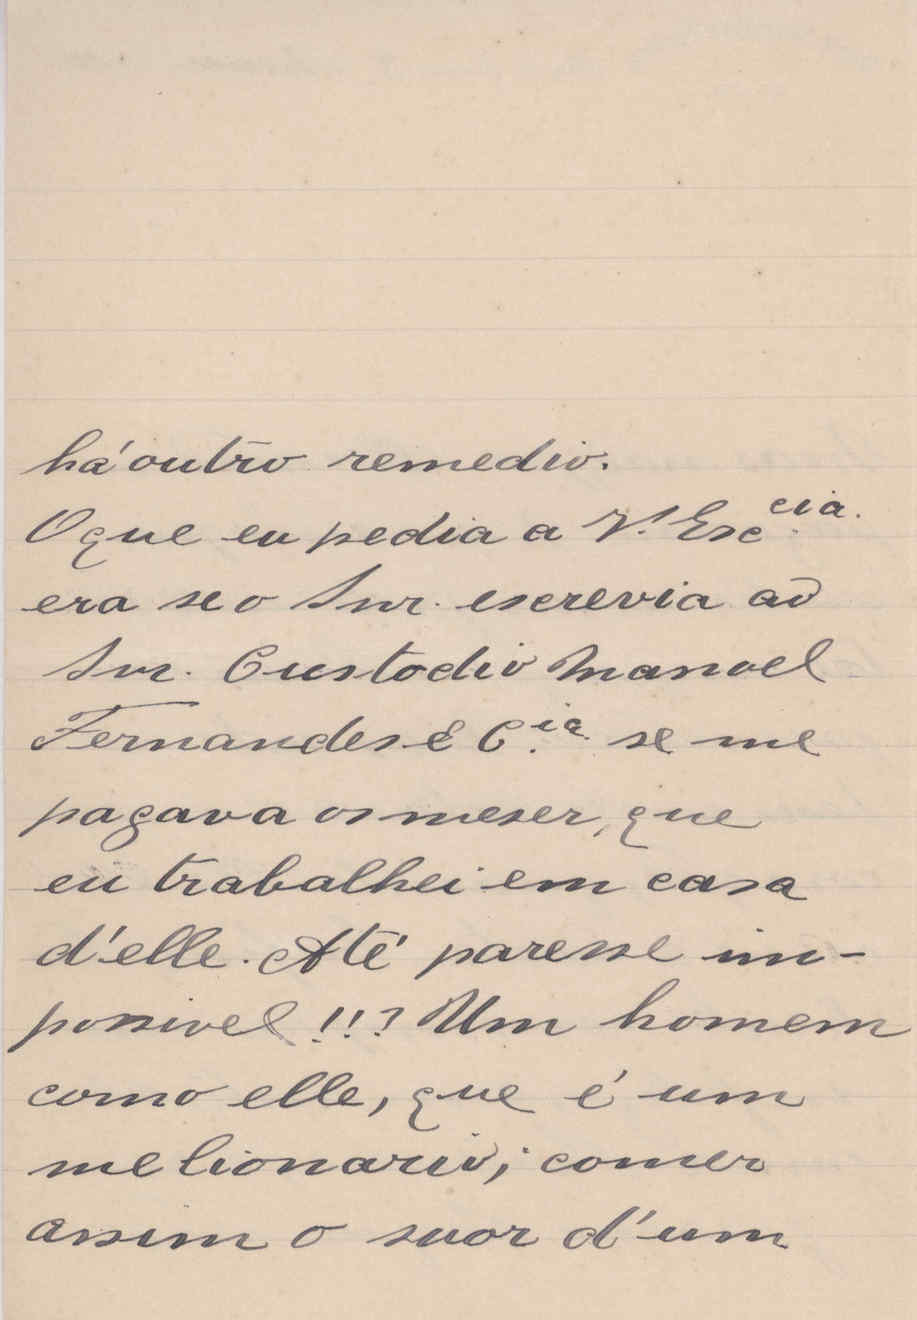 há outro remedio.
O que eu pedia a V.ª Exc.cia.
era se o Snr. escrevia ao
Snr. Custodio Manoel
Fernandes & C.ia se me
pagava os meser, que
eu trabalhei em casa
d'elle. Até paresse im-
possivel !!? Um homem
como elle, que é um
melionario; comer
assim o suor d'um